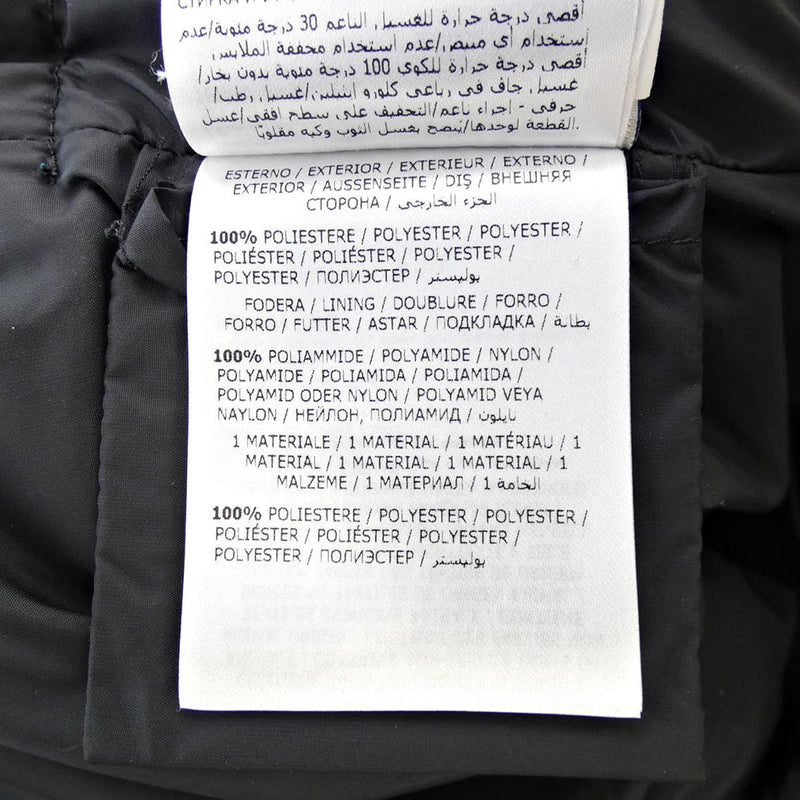 СТИРКА И
أقصى درجة حرارة للغسيل الناعم 30 درجة مئوية/عدم
استخدام أي مبيض/عدم استخدام مجففة الملابس
أقصى درجة حرارة للكوي 100 درجة مئوية بدون بخار/
غسيل جاف في رباعي كلورو إيثيلين/غسيل رطب/
حرفي - إجراء ناعم/التجفيف على سطح افقي/غسل
القطعة لوحدها/يُنصح بغسل الثوب وكيه مقلوبًا.
ESTERNO / EXTERIOR / EXTERIEUR / EXTERNO /
EXTERIOR / AUSSENSEITE / DIŞ / ВНЕШНЯЯ
СТОРОНА / الجزء الخارجي
100% POLIESTERE / POLYESTER / POLYESTER /
POLIÉSTER / POLIÉSTER / POLYESTER /
POLYESTER / ПОЛИЭСТЕР / بوليستر
FODERA / LINING / DOUBLURE / FORRO /
FORRO / FUTTER / ASTAR / ПОДКЛАДКА / بطانة
100% POLIAMMIDE / POLYAMIDE / NYLON /
POLYAMIDE / POLIAMIDA / POLIAMIDA /
POLYAMID ODER NYLON / POLYAMID VEYA
NAYLON / НЕЙЛОН, ПОЛИАМИД / نايلون
1 MATERIALE / 1 MATERIAL / 1 MATÉRIAU / 1
MATERIAL / 1 MATERIAL / 1 MATERIAL / 1
MALZEME / 1 МАТЕРИАЛ / 1 الخامة
100% POLIESTERE / POLYESTER / POLYESTER /
POLIÉSTER / POLIÉSTER / POLYESTER /
POLYESTER / ПОЛИЭСТЕР / بوليستر